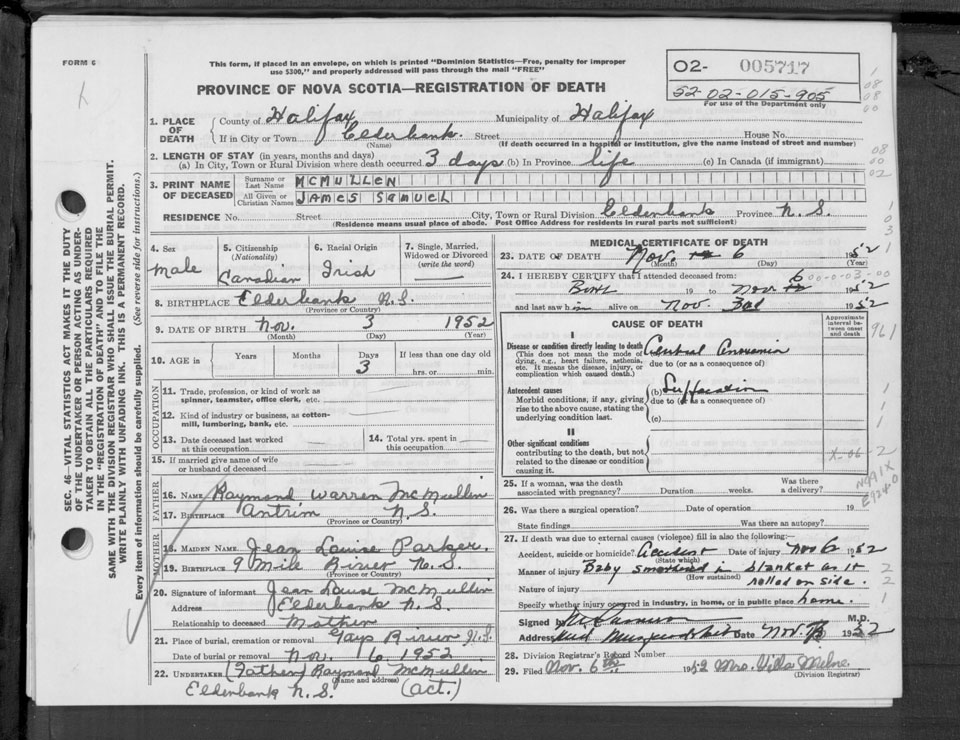 FORM 6
This form, if placed in an envelope, on which is printed "Dominion Statistics—Free, penalty for improper
use $300," and properly addressed will pass through the mail "FREE"
PROVINCE OF NOVA SCOTIA—REGISTRATION OF DEATH
02- 005717
52-02-015-905
For use of the Department only
1. PLACE OF DEATH
County of Halifax Municipality of Halifax
If in City or Town Elderbank Street House No.
(Name) (If death occurred in a hospital or institution, give the name instead of street and number)
2. LENGTH OF STAY (in years, months and days)
(a) In City, Town or Rural Division where death occurred 3 days (b) In Province life (c) In Canada (if immigrant)
3. PRINT NAME OF DECEASED
Surname or Last Name MCMULLEN
All Given or Christian Names JAMES SAMUEL
RESIDENCE No. Street City, Town or Rural Division Elderbank Province N.S.
(Residence means usual place of abode. Post Office Address for residents in rural parts not sufficient)
4. Sex
male
5. Citizenship
(Nationality)
Canadian
6. Racial Origin
Irish
7. Single, Married,
Widowed or Divorced
(write the word)
8. BIRTHPLACE Elderbank N.S.
(Province or Country)
9. DATE OF BIRTH Nov. 3 1952
(Month) (Day) (Year)
10. AGE in
Years Months Days If less than one day old
3 hrs. or min.
OCCUPATION
11. Trade, profession, or kind of work as
spinner, teamster, office clerk, etc.
12. Kind of industry or business, as cotton-
mill, lumbering, bank, etc.
13. Date deceased last worked
at this occupation
14. Total yrs. spent in
this occupation
15. If married give name of wife
or husband of deceased
FATHER
16. NAME Raymond Warren McMullin
17. BIRTHPLACE Antrim N.S.
(Province or Country)
MOTHER
18. MAIDEN NAME Jean Louise Parker.
19. BIRTHPLACE 9 Mile River N.S.
(Province or Country)
20. Signature of informant Jean Louise McMullin
Address Elderbank N.S.
Relationship to deceased Mother
21. Place of burial, cremation or removal Gays River N.S.
Date of burial or removal Nov. 6 1952
22. UNDERTAKER (Father) Raymond McMullin
(Name and address)
Elderbank N.S. (act.)
MEDICAL CERTIFICATE OF DEATH
23. DATE OF DEATH Nov. 6 1952
(Month) (Day)
24. I HEREBY CERTIFY that I attended deceased from:
Birth 19 to Nov 6 1952
and last saw him alive on Nov 3rd 1952
00-0-03-00
CAUSE OF DEATH
Approximate
interval be-
tween onset
and death
I
Disease or condition directly leading to death
(This does not mean the mode of
dying, e.g., heart failure, asthenia,
etc. It means the disease, injury, or
complication which caused death.)
(a) Cerebral Anoxemia
due to (or as a consequence of)
Antecedent causes
Morbid conditions, if any, giving
rise to the above cause, stating the
underlying condition last.
(b) Suffocation
due to (or as a consequence of)
(c)
II
Other significant conditions
contributing to the death, but not
related to the disease or condition
causing it.
X-06-2
25. If a woman, was the death
associated with pregnancy? Duration weeks. Was there
a delivery?
26. Was there a surgical operation? Date of operation 19
State findings Was there an autopsy?
27. If death was due to external causes (violence) fill in also the following:
Accident, suicide or homicide? Accident Date of injury Nov 6 1952
(State which)
Manner of injury Baby smothered in blanket as it
(How sustained)
Nature of injury rolled on side.
Specify whether injury occurred in industry, in home, or in public place home.
Signed by M.D.
Address Date Nov. 1952
28. Division Registrar's Record Number
29. Filed Nov. 6th 1952 Mrs. Villa Milne
(Division Registrar)
961
N991X
E924.0
SEC. 46—VITAL STATISTICS ACT MAKES IT THE DUTY
OF THE UNDERTAKER OR PERSON ACTING AS UNDER-
TAKER TO OBTAIN ALL THE PARTICULARS REQUIRED
IN THE "REGISTRATION OF DEATH" AND TO FILE THE
SAME WITH THE DIVISION REGISTRAR WHO SHALL ISSUE THE BURIAL PERMIT.
WRITE PLAINLY WITH UNFADING INK. THIS IS A PERMANENT RECORD.
Every item of information should be carefully supplied. (See reverse side for instructions.)